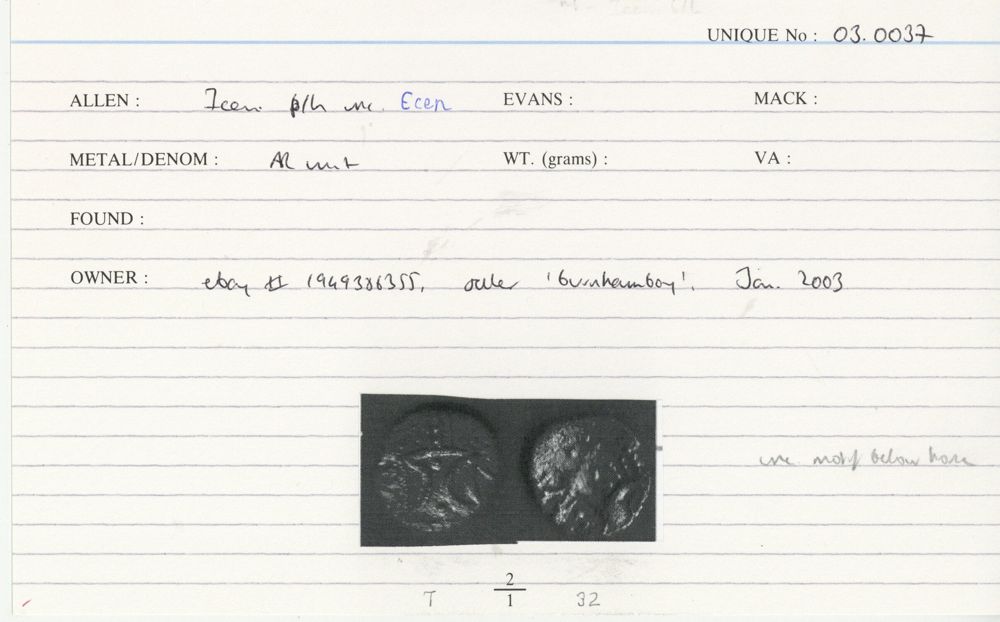 UNIQUE No : 03.0037
ALLEN : Icen. p/h unc. Ecen EVANS : MACK :
METAL/DENOM : AR unit WT. (grams) : VA :
FOUND :
OWNER : ebay # 1949386355, seller 'burnhamboy'. Jan. 2003
unc. motif below horse
2
T 1 32